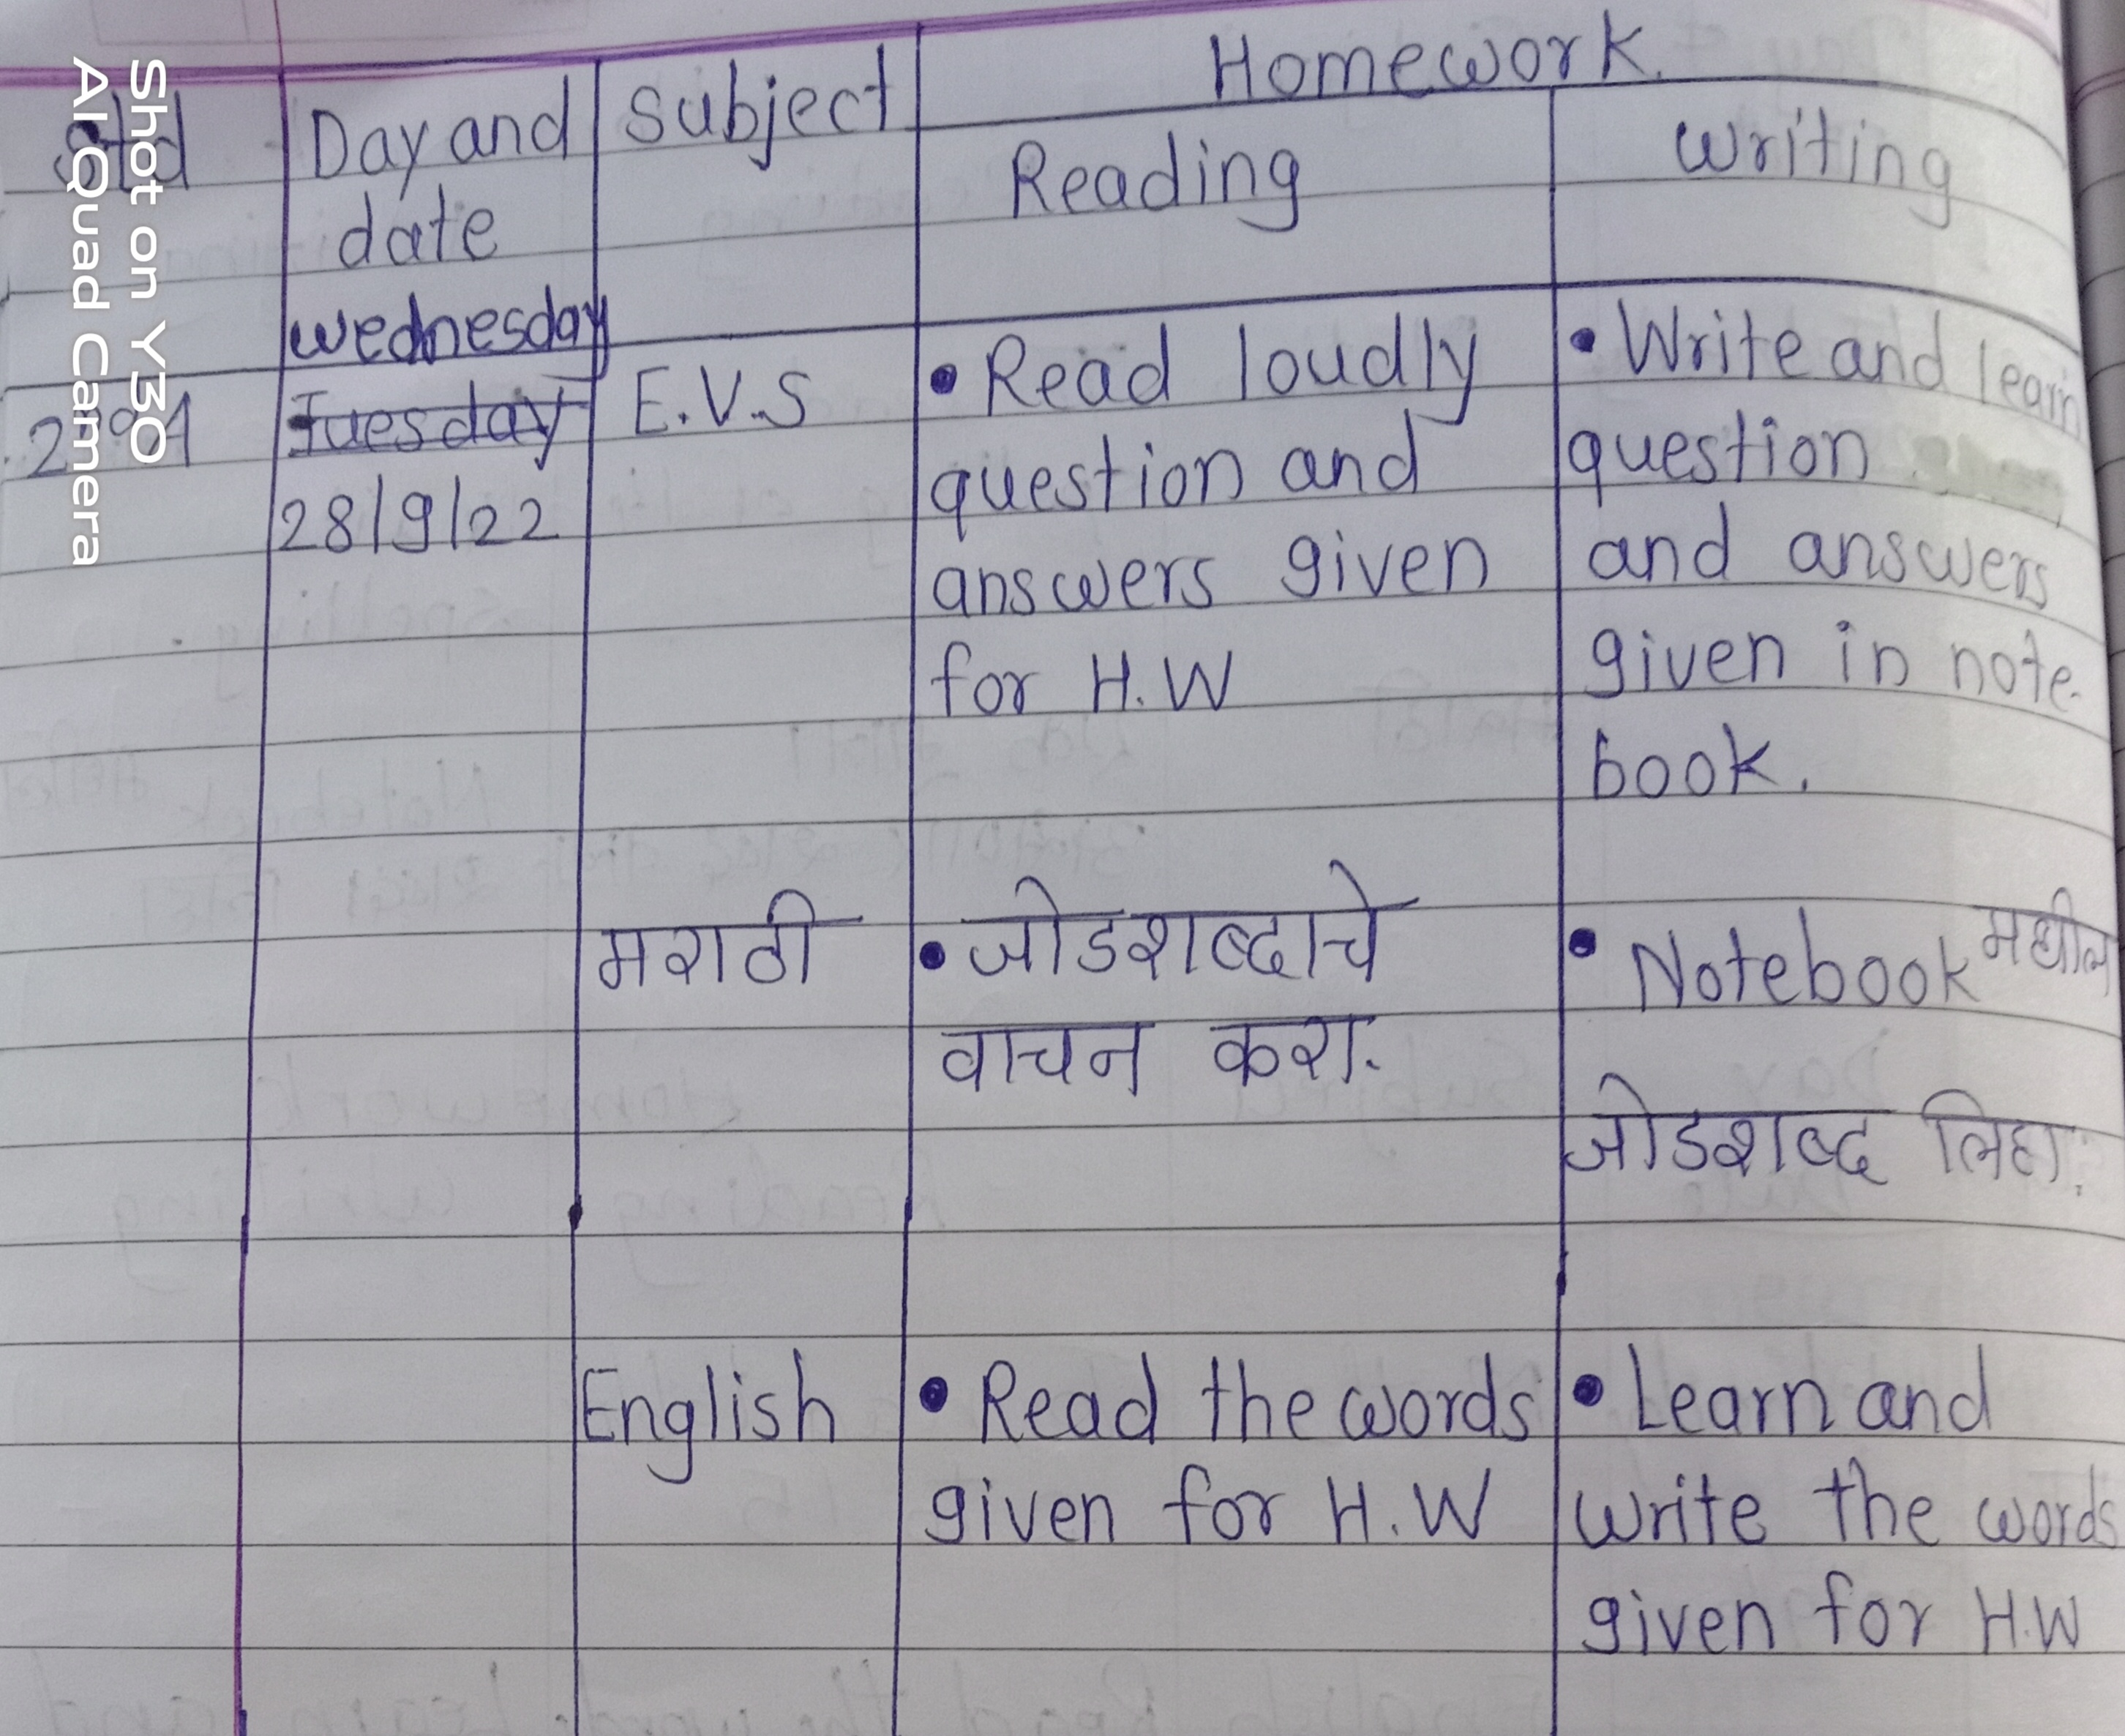 Shot on Y30
AI Quad Camera
Std
Day and
date
Subject
Homework.
Reading
Writing
Wednesday
Tuesday
28/9/22
2nd A
E.V.S
• Read loudly
question and
answers given
for H.W
• Write and learn
question
and answers
given in note-
book.
मराठी
• जोडशब्दाचे
वाचन करा.
• Notebook मधील
जोडशब्द लिहा.
English
• Read the words
given for H.W
• Learn and
write the words
given for H.W